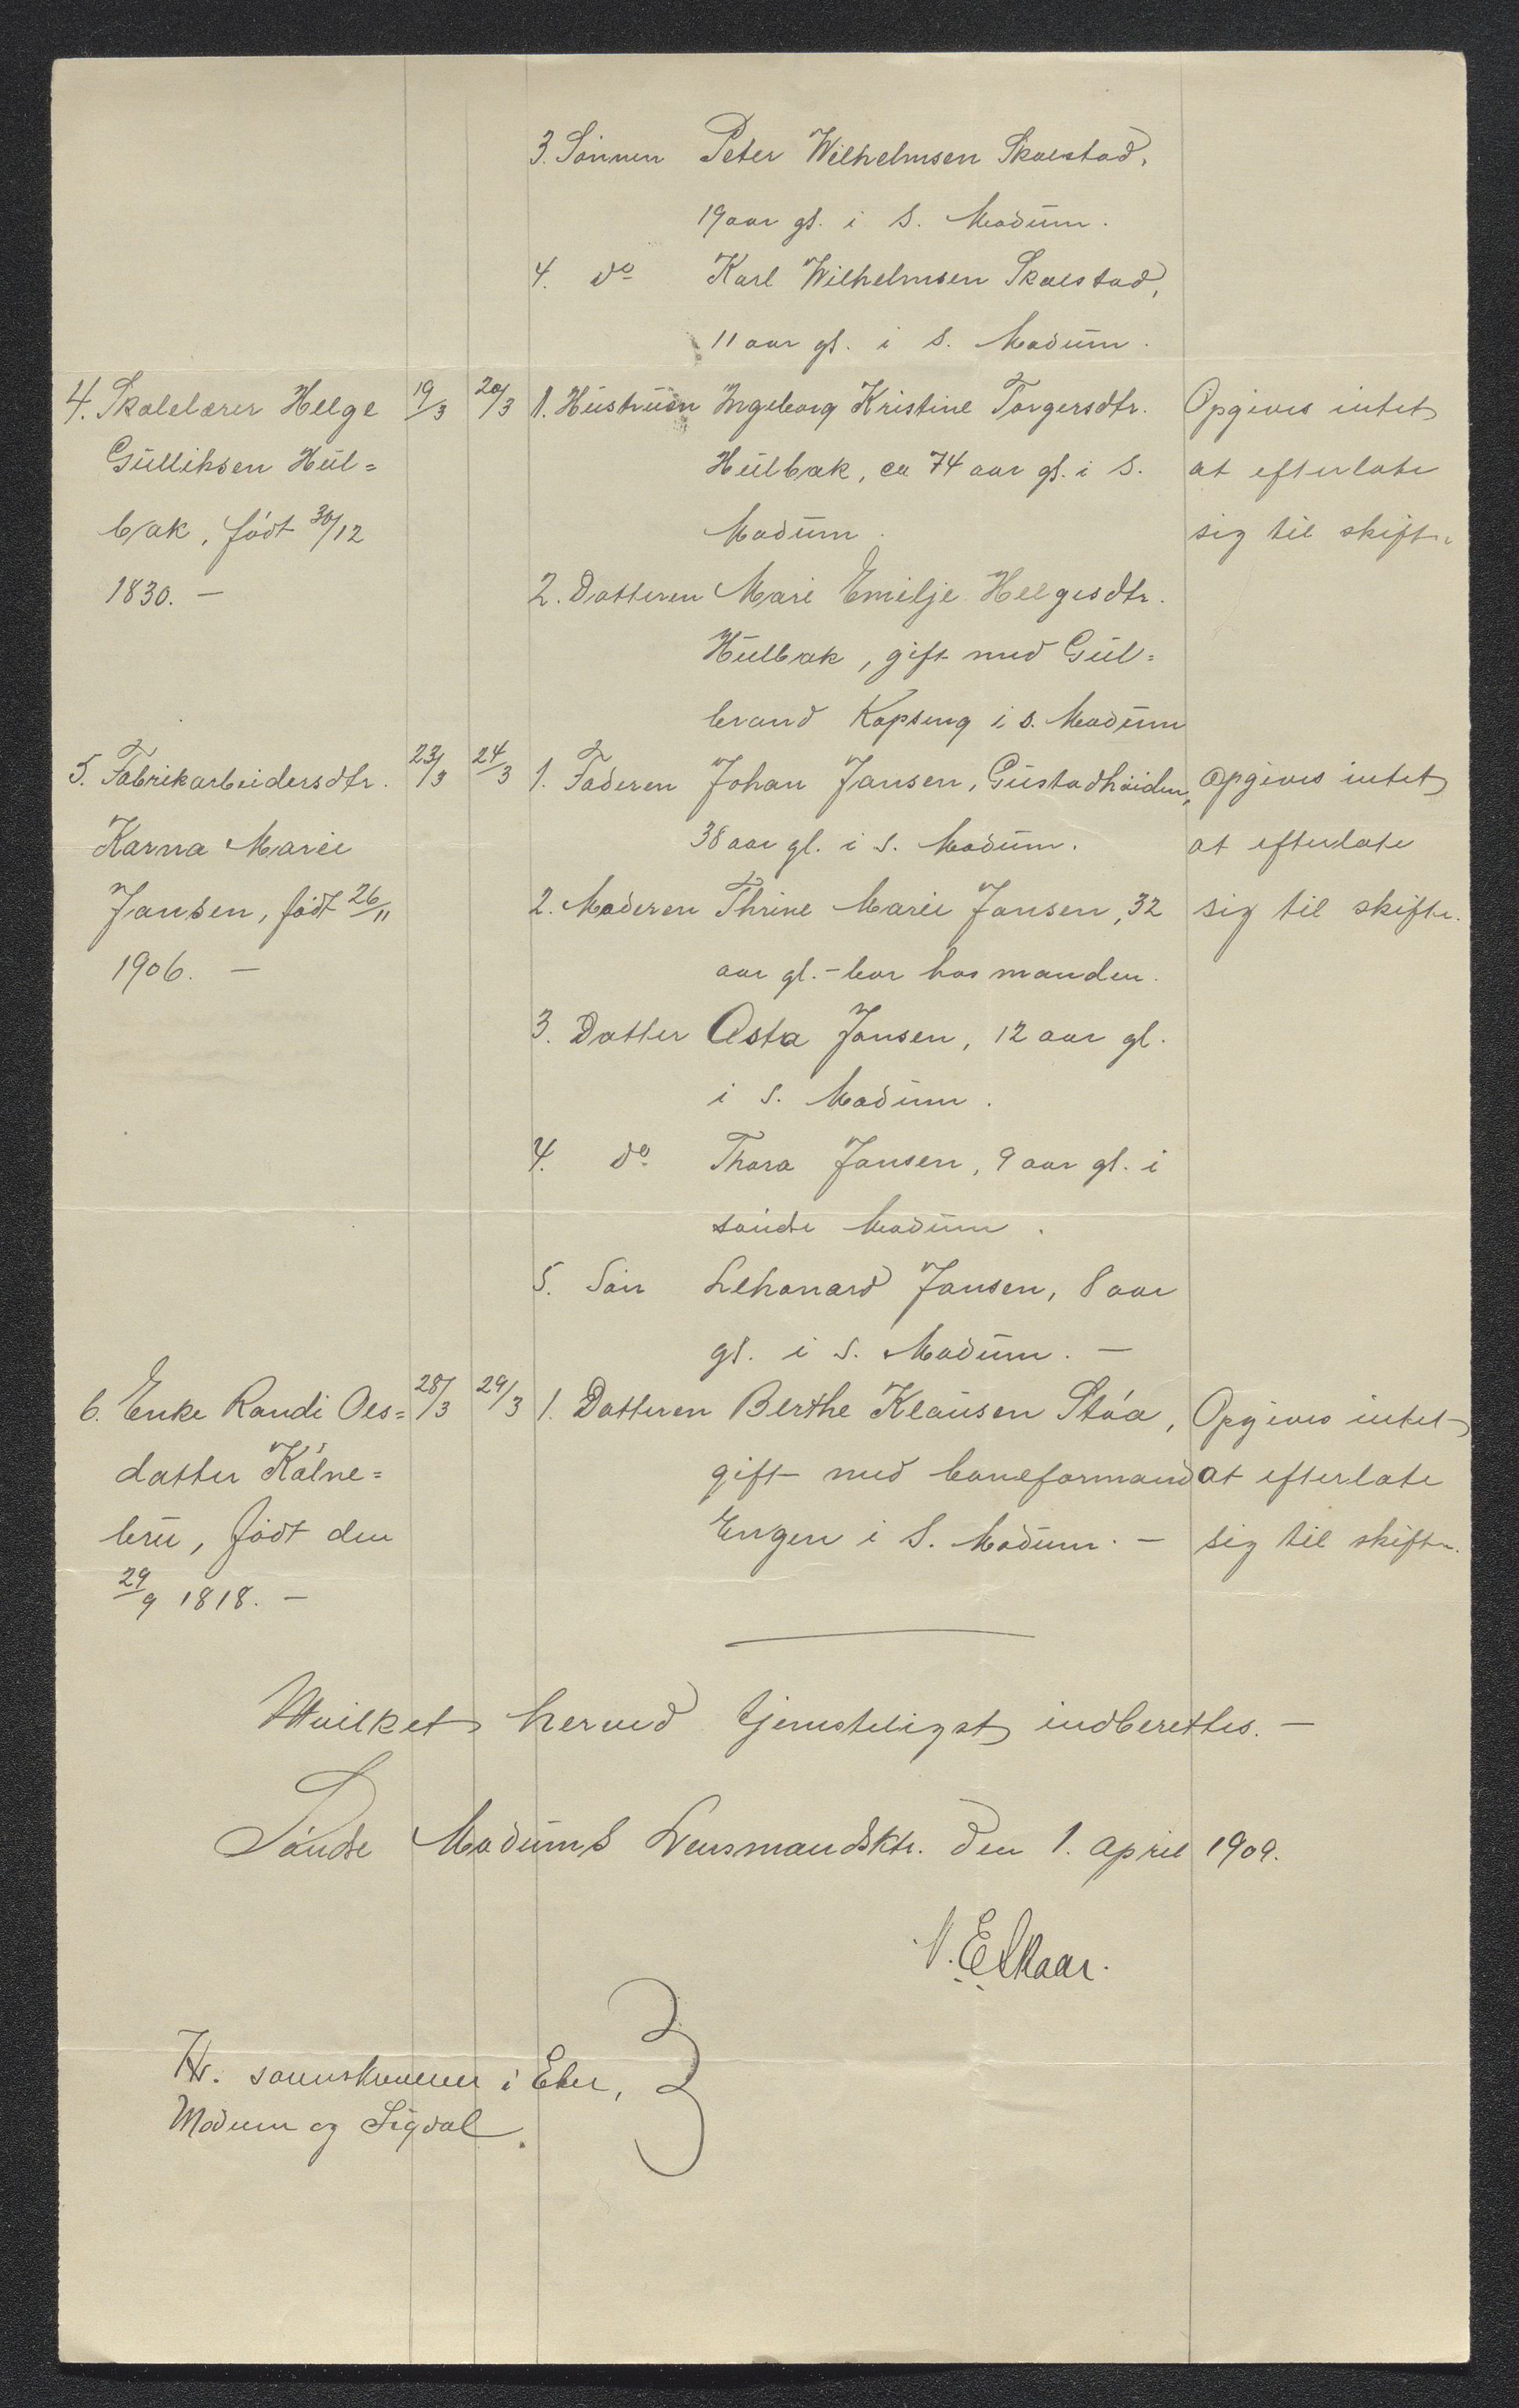 3. Sønnen Peter Wilhelmsen Skalstad,
19 aar gl. i S. Modum.
4. do Karl Wilhelmsen Skalstad,
11 aar gl. i S. Modum.
4. Skolelærer Helge 19/3 20/3 1. Hustruen Ingeborg Kristine Torgersdtr. Opgives intet
Gulliksen Hul= Hulbak, ca 74 aar gl. i S. at efterlate
bak, født 30/12 Modum. sig til skifte
1830. —
2. Datteren Mari Emilje Helgesdtr.
Hulbak, gift med Gul=
brand Kopseng i s. Modum
5. Fabrikarbeidersdtr. 23/3 24/3 1. Faderen Johan Jansen, Gustadheiden, Opgives intet
Karna Marie 38 aar gl. i S. Modum. at efterlate
Jansen, født 26/11 2. Moderen Thrine Marie Jansen, 32 sig til skifte.
1906. — aar gl. - bor hos manden.
3. Datter Asta Jansen, 12 aar gl.
i S. Modum.
4. do Thora Jansen, 9 aar gl. i
søndre Modum.
5. Søn Lehonard Jansen, 8 aar
gl. i S. Modum. —
6. Enke Randi Ols= 28/3 29/3 1. Datteren Berthe Klausen Støa, Opgives intet
datter Kølne= gift med baneformand at efterlate
bru, født den Engen i S. Modum. — sig til skifte.
29/9 1818. —
Hvilket herved tjenstligst indberettes. —
Søndre Modums Lensmandsktr. den 1. april 1909.
N. E. Skaar.
Hr. sorenskriveren i Eker,
Modum og Sigdal.
3